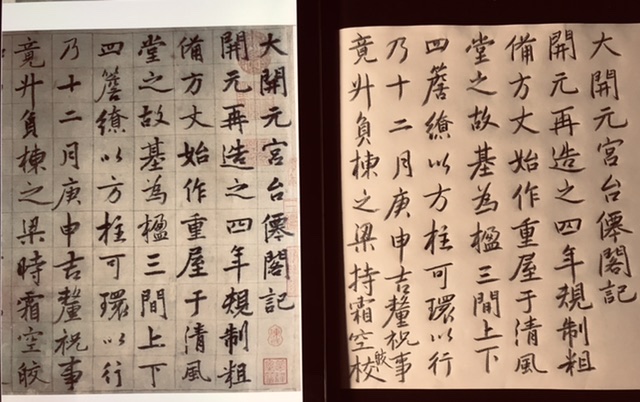 大開元宮台僊閣記
開元再造之四年規制粗
備方丈始作重屋于清風
堂之故基為楹三間上下
四簷繚以方柱可環以行
乃十二月庚申吉釐祝事
竟升負棟之梁時霜空皎
大開元宮台僊閣記
開元再造之四年規制粗
備方丈始作重屋于清風
堂之故基為楹三間上下
四簷繚以方柱可環以行
乃十二月庚申吉釐祝事
竟升負棟之梁持霜空校